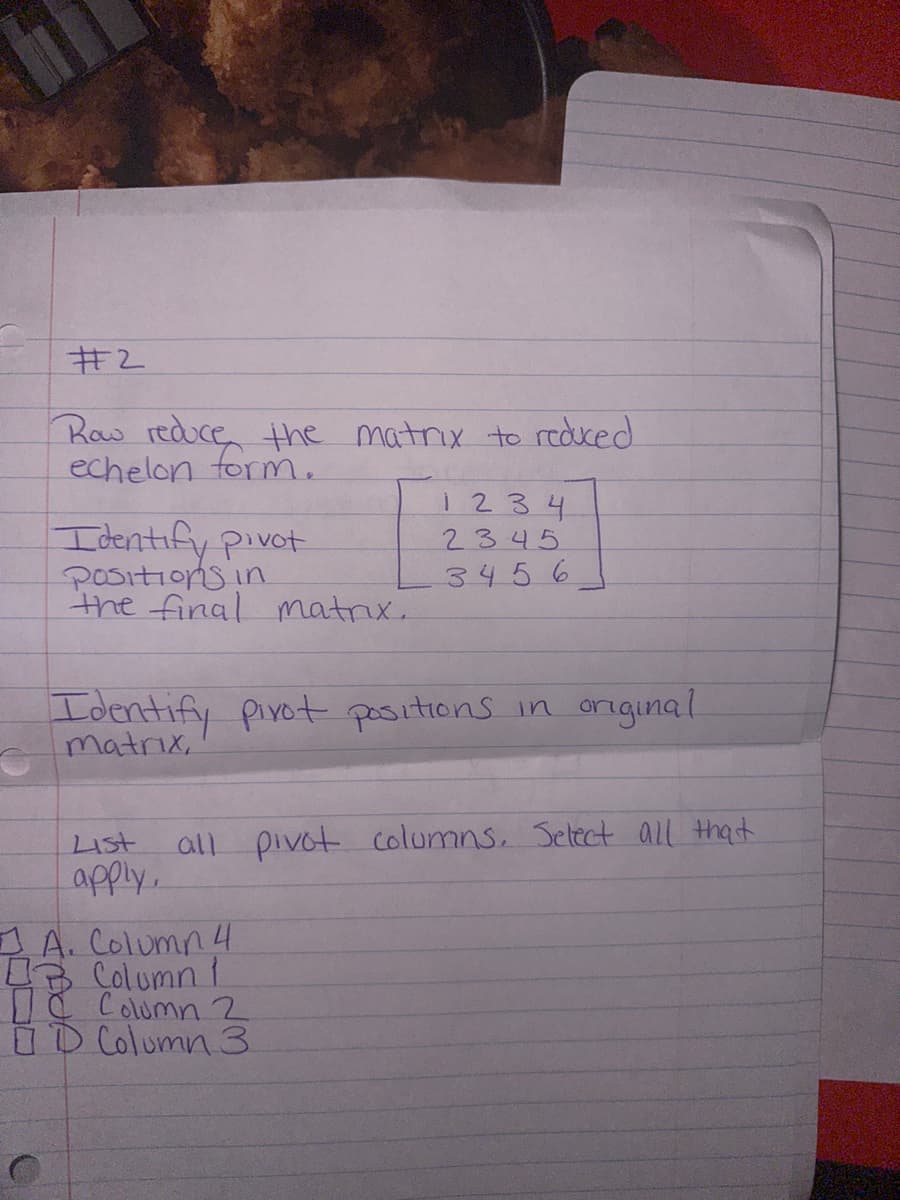 #2
Row reduce the matrix to reduced
echelon form.
1 2 3 4
2 3 4 5
3 4 5 6
Identify pivot
positions in
the final matrix.
Identify pivot positions in original
matrix,
List all pivot columns. Select all that
apply.
A. Column 4
B Column 1
C Column 2
D Column 3